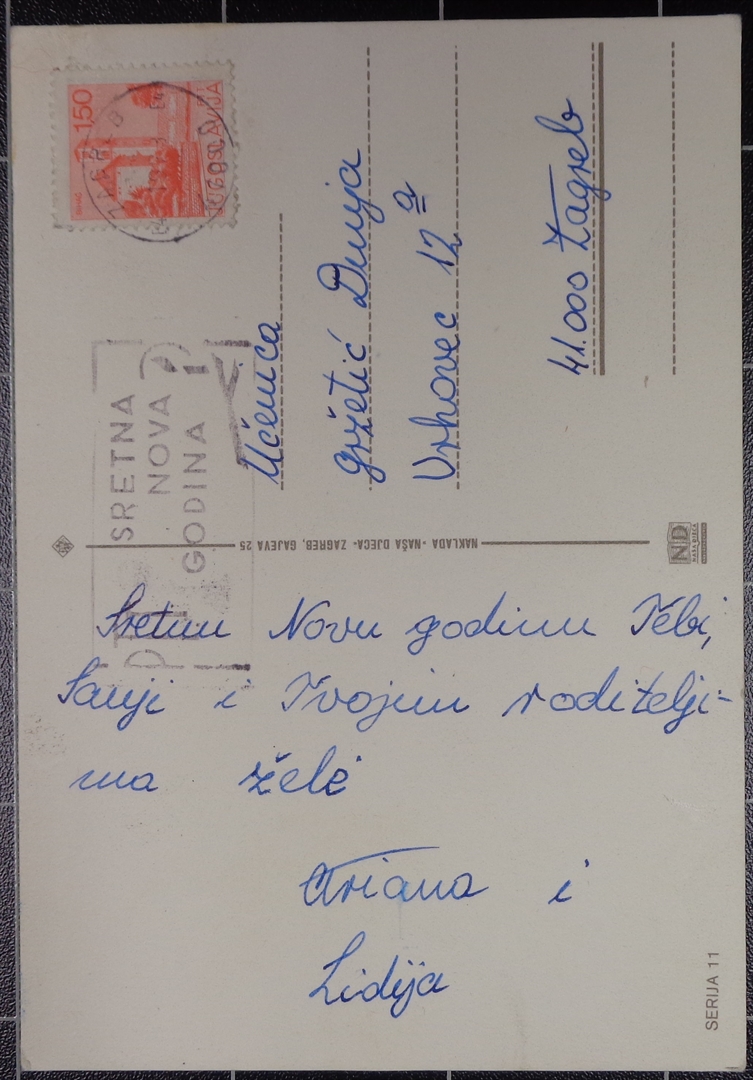 Sretnu Novu godinu Tebi,
Sanji i Tvojim roditelji-
ma žele
Ariana i
Lidija
Učenica
Gržetić Dunja
Vrhovec 12 a
41.000 Zagreb
SRETNA
NOVA
GODINA
150
JUGOSLAVIJA
ZAGREB
NAKLADA · NAŠA DJECA · ZAGREB, GAJEVA 25
ND
NAŠA DJECA
SERIJA 11